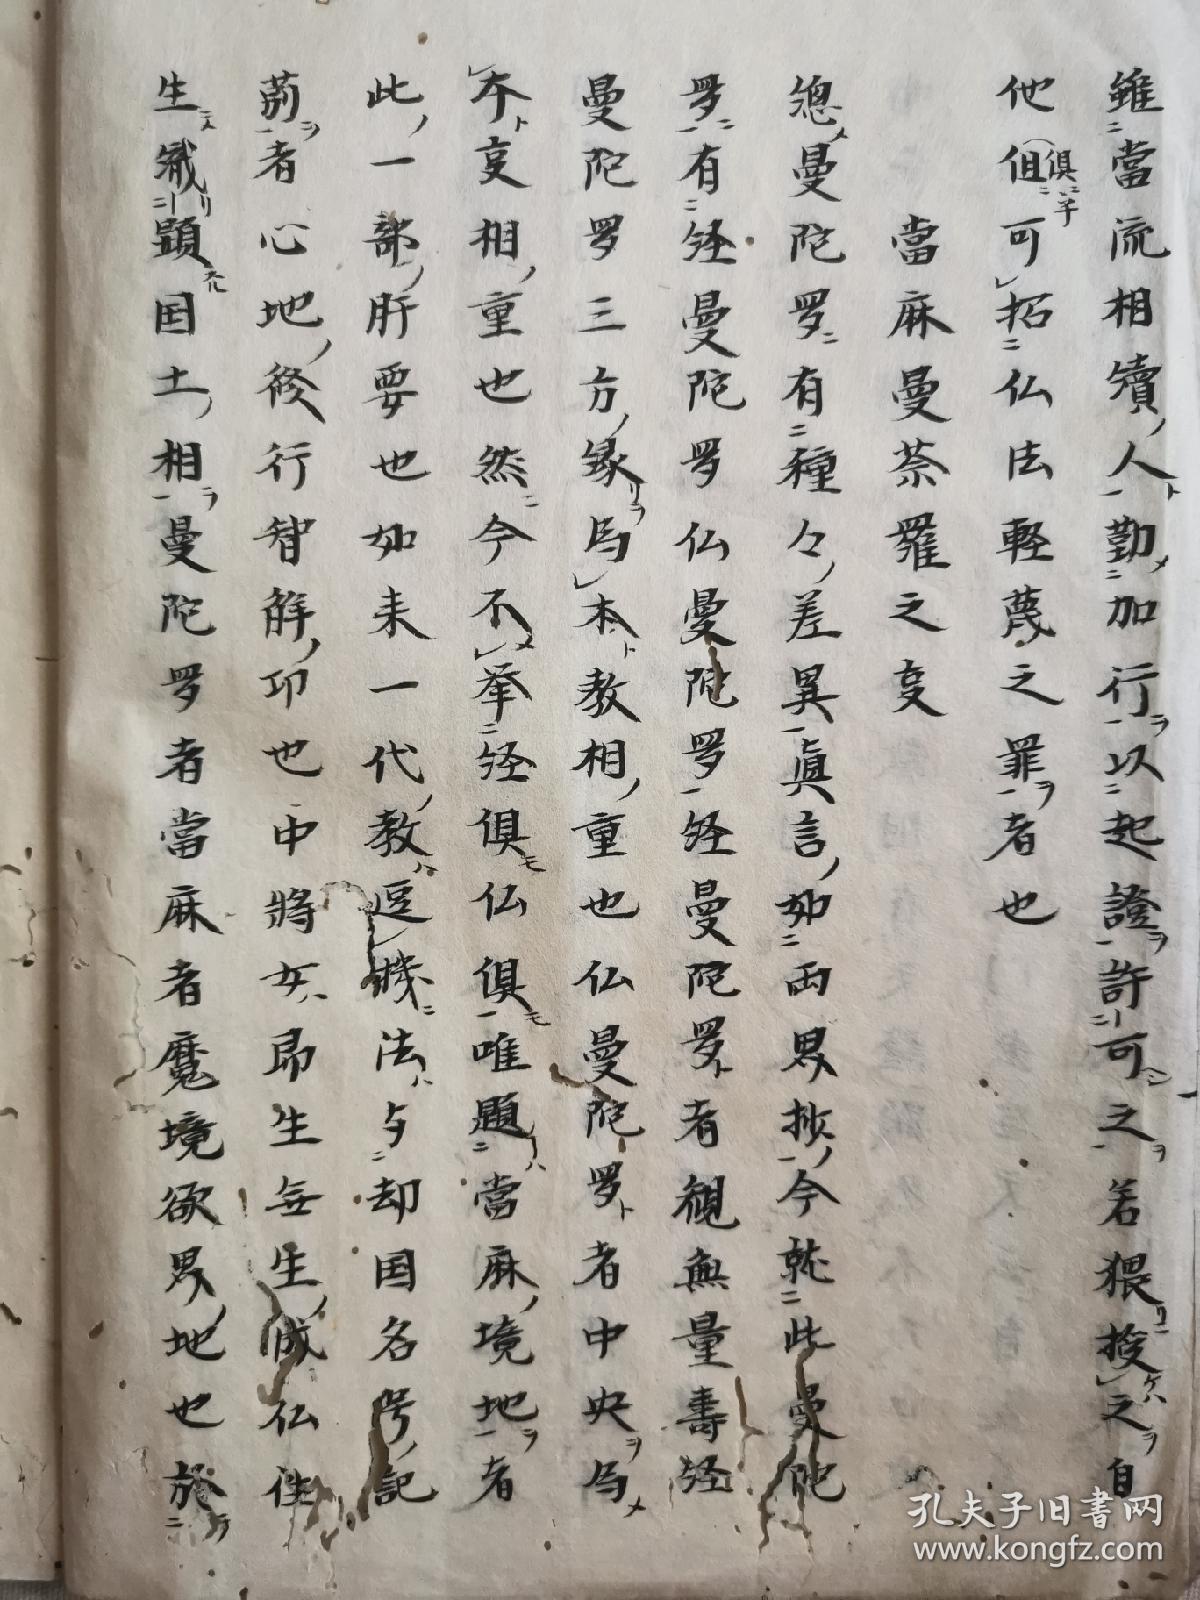 雖當流相續人勤加行以起證許可之若猥授之自
他但俱可招仏法軽蔑之罪者也
當麻曼荼羅之㕝
惣曼陀罗有種々差異真言如両界抄今就此曼陀
罗有経曼陀罗仏曼陀罗経曼陀罗者観無量壽経
曼陀罗三方縁為本教相重也仏曼陀罗者中央為
本㕝相重也然今不挙経俱仏俱唯題當麻境地者
此一部肝要也如来一代教逗機法与却国名号記
莂者心地修行智解功也中将女即生無生成仏往
生織顕国土相曼陀罗者當麻者魔境欲界地也於
孔夫子旧书网
www.kongfz.com